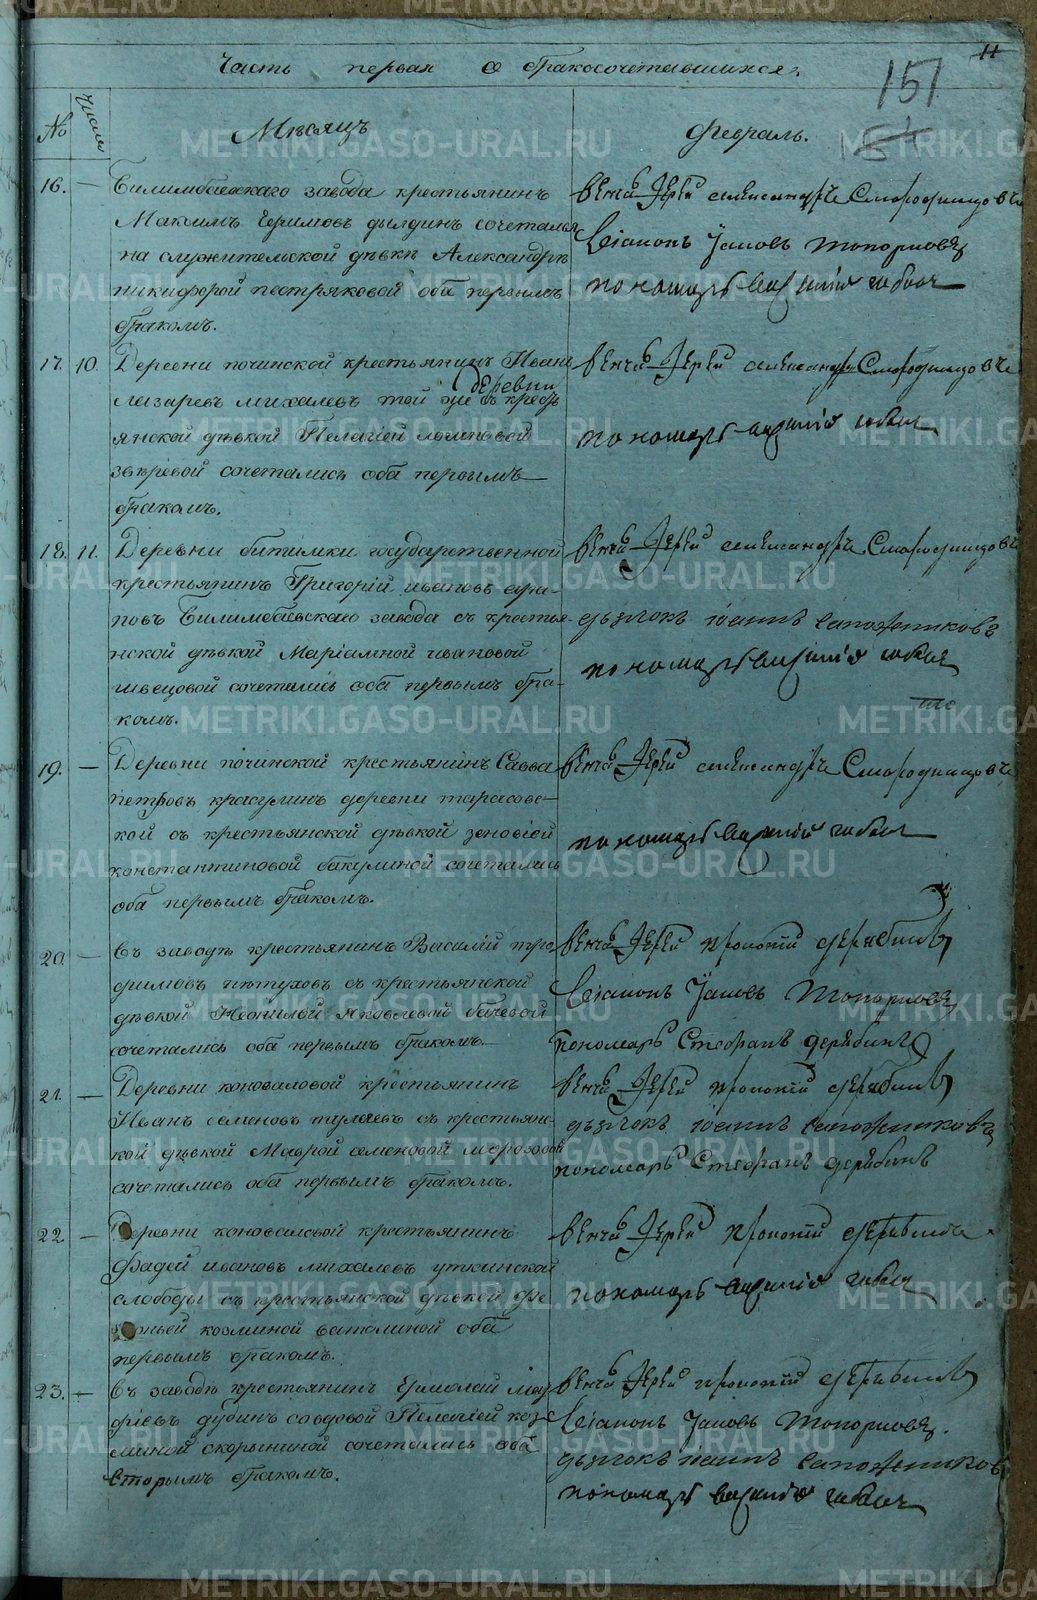 11
Часть первая о бракосочетавшихся.
151
№ Число
Мѣсяцъ Февраль.
16. — Билимбаевскаго завода крестьянинъ
Максимъ Ефимовъ дылдинъ сочетался
на служительской дѣвкѣ Александрѣ
никифорой пестряковой оба первымъ
бракомъ.
Вѣнчалъ Iерей александръ Смородинцовъ
Дiаконъ Iаковъ Топорковъ
пономарь
17. 10. Деревни починской крестьянинъ Иванъ
лазаревъ михалевъ той же деревни съ кресть
янской дѣвкой Пелагiей
звѣревой сочетались оба первымъ
бракомъ.
вѣнчалъ Iерей александръ Смородинцовъ
пономарь
18. 11. Деревни битимки государственной
крестьянинъ Григорiй ивановъ
Билимбаевскаго завода съ крестья-
нской дѣвкой Марiамной ивановой
швецовой сочетались оба первымъ бра-
комъ.
вѣнчалъ Iерей александръ Смородинцовъ
дьячокъ iоаннъ сапожниковъ
пономарь
19. — Деревни починской крестьянинъ Савва
петровъ красулинъ деревни тарасовс-
кой съ крестьянской дѣвкой зеновiей
константиновой бакулиной сочетались
оба первымъ бракомъ.
вѣнчалъ Iерей александръ Смородинцовъ
пономарь
20. — въ заводѣ крестьянинъ Василiй тро-
фимовъ пѣтуховъ съ крестьянской
дѣвкой Неонилой Яковлевой
сочетались оба первымъ бракомъ.
вѣнчалъ Iерей прокопiй дерябинъ
Дiаконъ Iаковъ Топорковъ
пономарь Стефанъ дерябинъ
21. — Деревни коноваловой крестьянинъ
Иванъ семеновъ съ крестьянс-
кой дѣвкой Маврой семеновой морозовой
сочетались оба первымъ бракомъ.
вѣнчалъ Iерей прокопiй дерябинъ
дьячокъ iоаннъ сапожниковъ
пономарь Стефанъ дерябинъ
22. — Деревни коноваловой крестьянинъ
Фадей ивановъ михалевъ уткинской
слободы съ крестьянской дѣвкой
козминой ватолиной оба
первымъ бракомъ.
вѣнчалъ Iерей прокопiй дерябинъ
пономарь
23. — въ заводѣ крестьянинъ Ермолай
дубинъ со вдовой Пелагiей коз-
миной скорыниной сочетались оба
вторымъ бракомъ.
вѣнчалъ Iерей прокопiй дерябинъ
Дiаконъ Iаковъ Топорковъ.
дьячокъ iоаннъ сапожниковъ
пономарь
METRIKI.GASO-URAL.RU